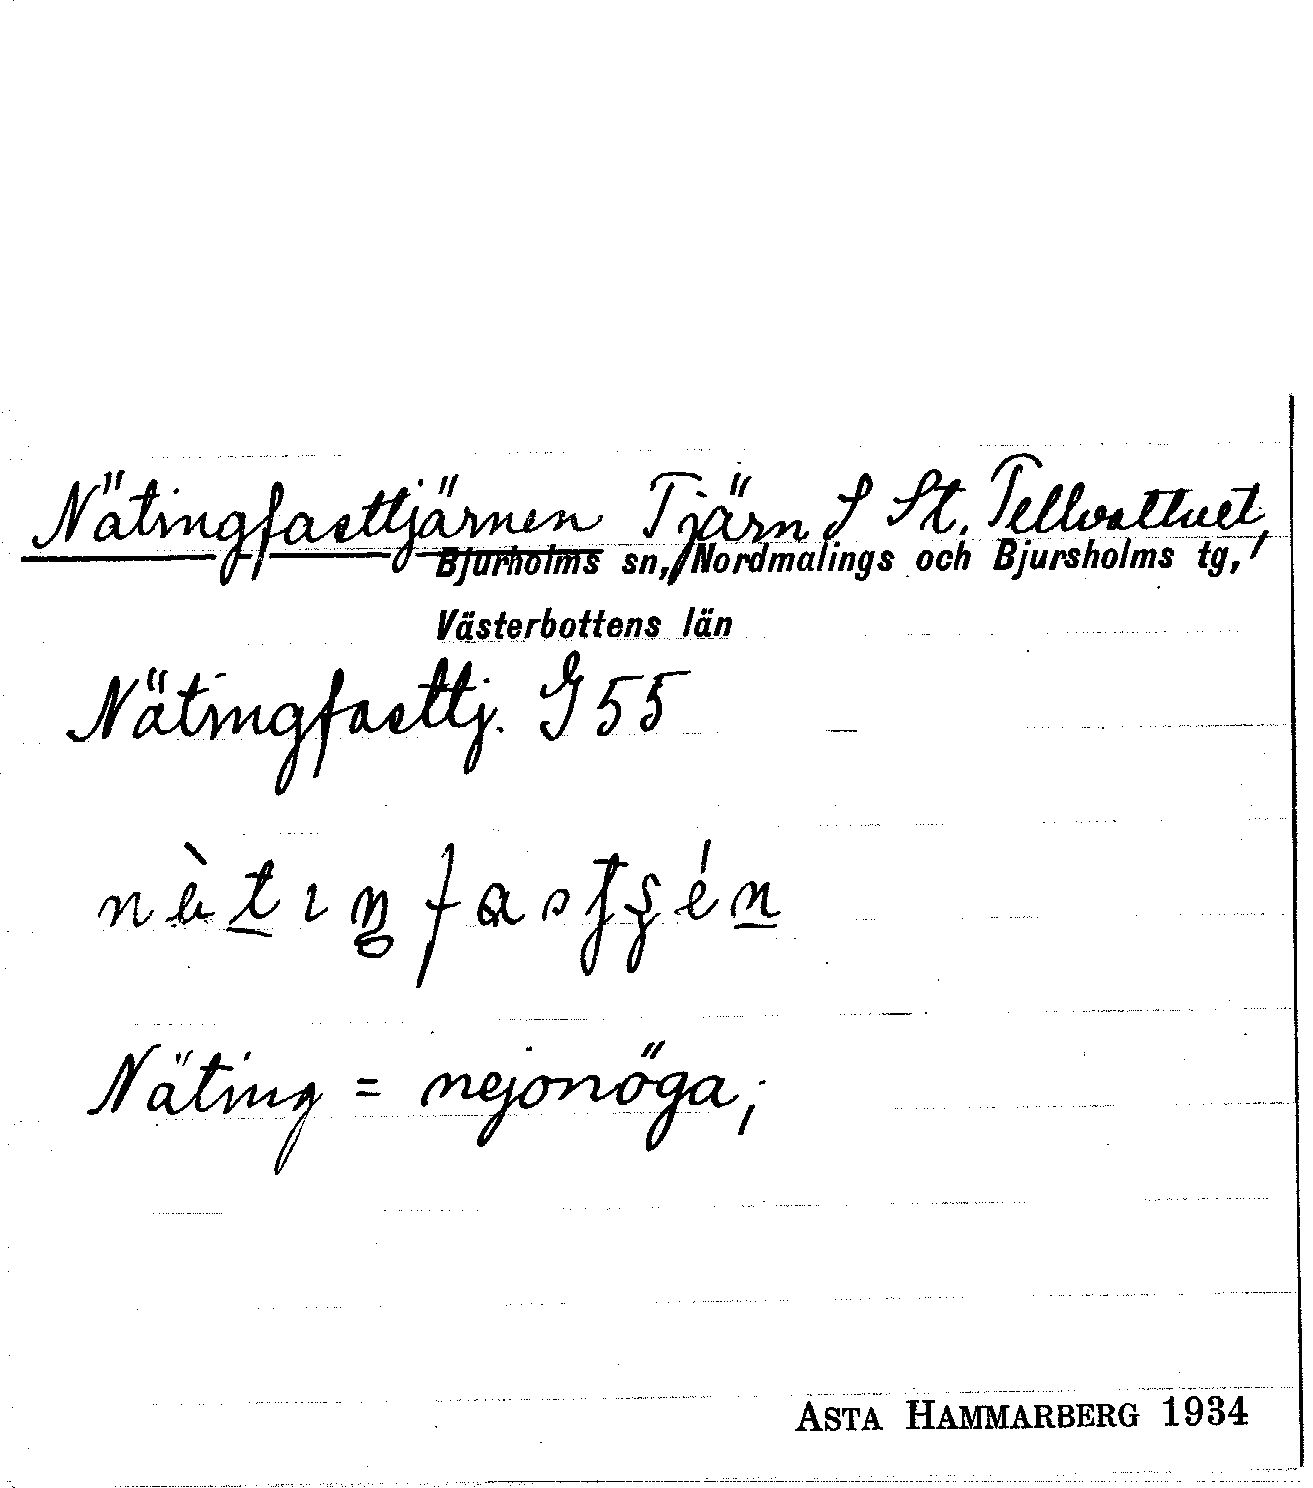 Nätingfasttjärnen Tjärn S St. Tellvattnet,
Bjurholms sn, Nordmalings och Bjursholms tg,
Västerbottens län
Nätingfasttj. G 55
Näting = nejonöga;
ASTA HAMMARBERG 1934